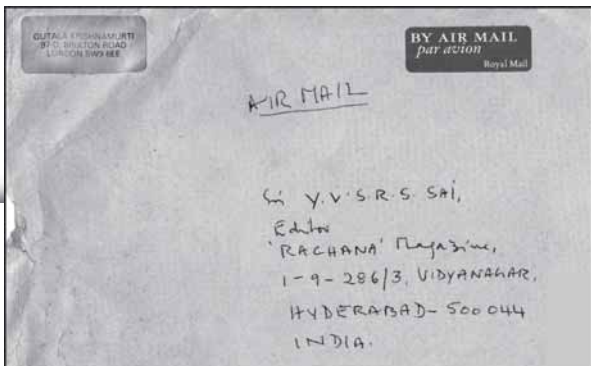 GUTALA KRISHNAMURTI
97-D, BRIXTON ROAD
LONDON SW9 6EE
BY AIR MAIL
par avion
Royal Mail
AIR MAIL
Sri Y.V.S.R.S. SAI,
Editor
'RACHANA' Magazine,
1-9-286/3, VIDYANAGAR,
HYDERABAD-500044
INDIA.